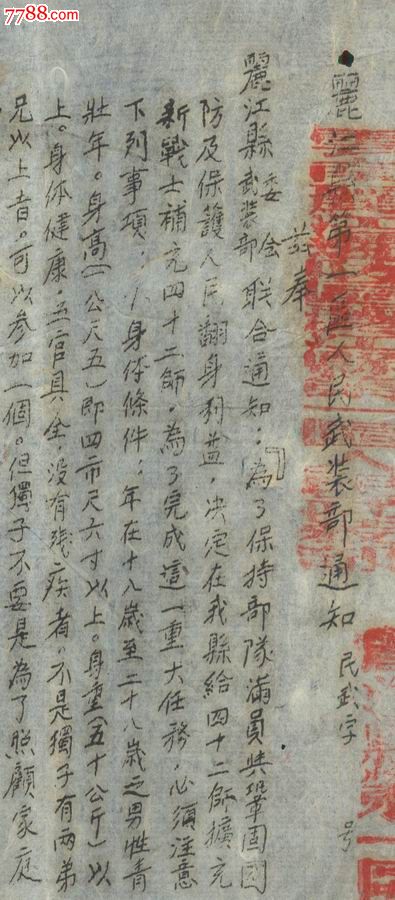 7788.com
麗江縣第一區人民武裝部通知 民武字 号
茲奉
麗江縣委会武裝部聯合通知：為了保持部隊滿員與鞏固國
防及保護人民翻身利益，決定在我縣給四十二師擴充
新戰士補充四十二師。為了完成這一重大任務，必須注意
下列事項：人身体條件：年在十八歲至二十八歲之男性青
壯年。身高（一公尺五）即四市尺六寸以上。身重（五十公斤）以
上。身体健康，五官具全，沒有殘疾者。不是獨子有兩弟
兄以上者。可以參加一個。但獨子不要是為了照顧家庭